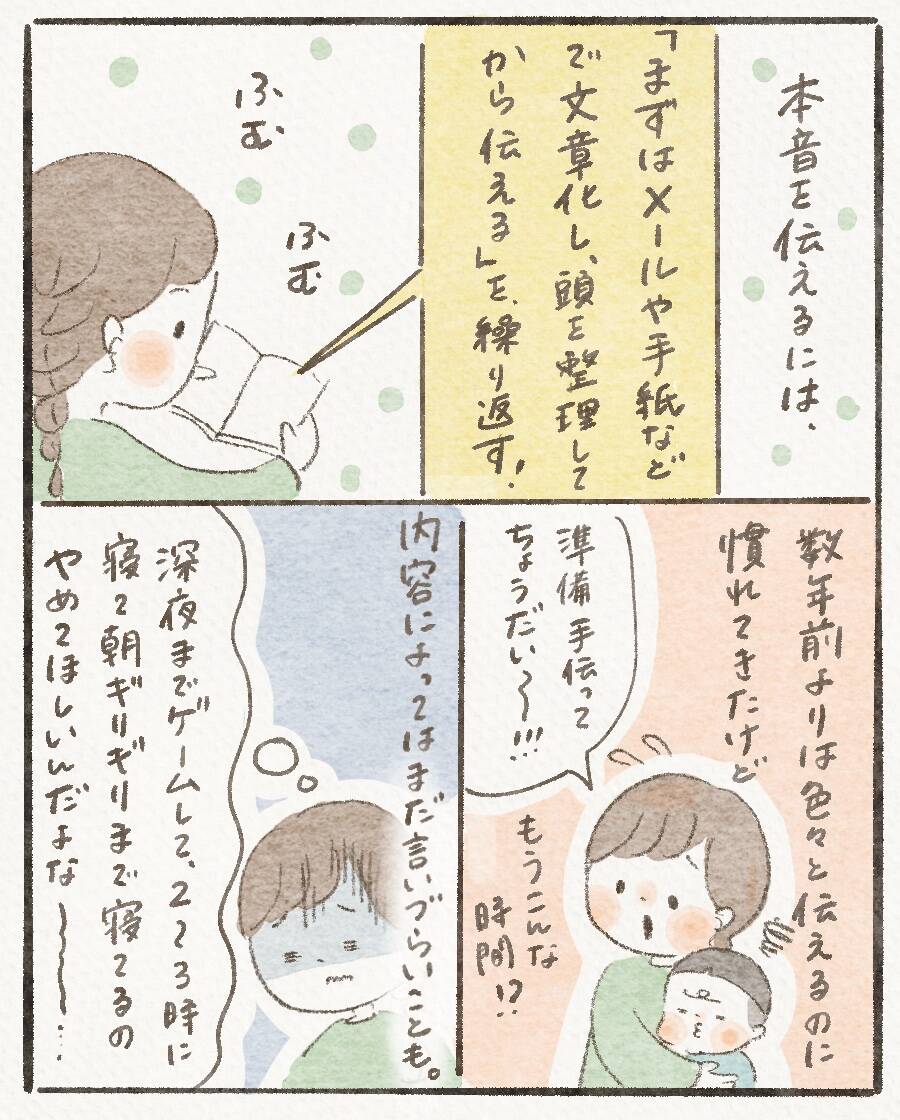 本音を伝えるには、
「まずはメールや手紙など
で文章化し、頭を整理して
から伝える」を、繰り返す!
ふむ
ふむ
数年前よりは色々と伝えるのに
慣れてきたけど
準備手伝って
ちょうだい〜!!!
もうこんな
時間!?
内容によってはまだ言いづらいことも。
深夜までゲームして、2〜3時に
寝て朝ギリギリまで寝てるの
やめてほしいんだよな〜〜〜…